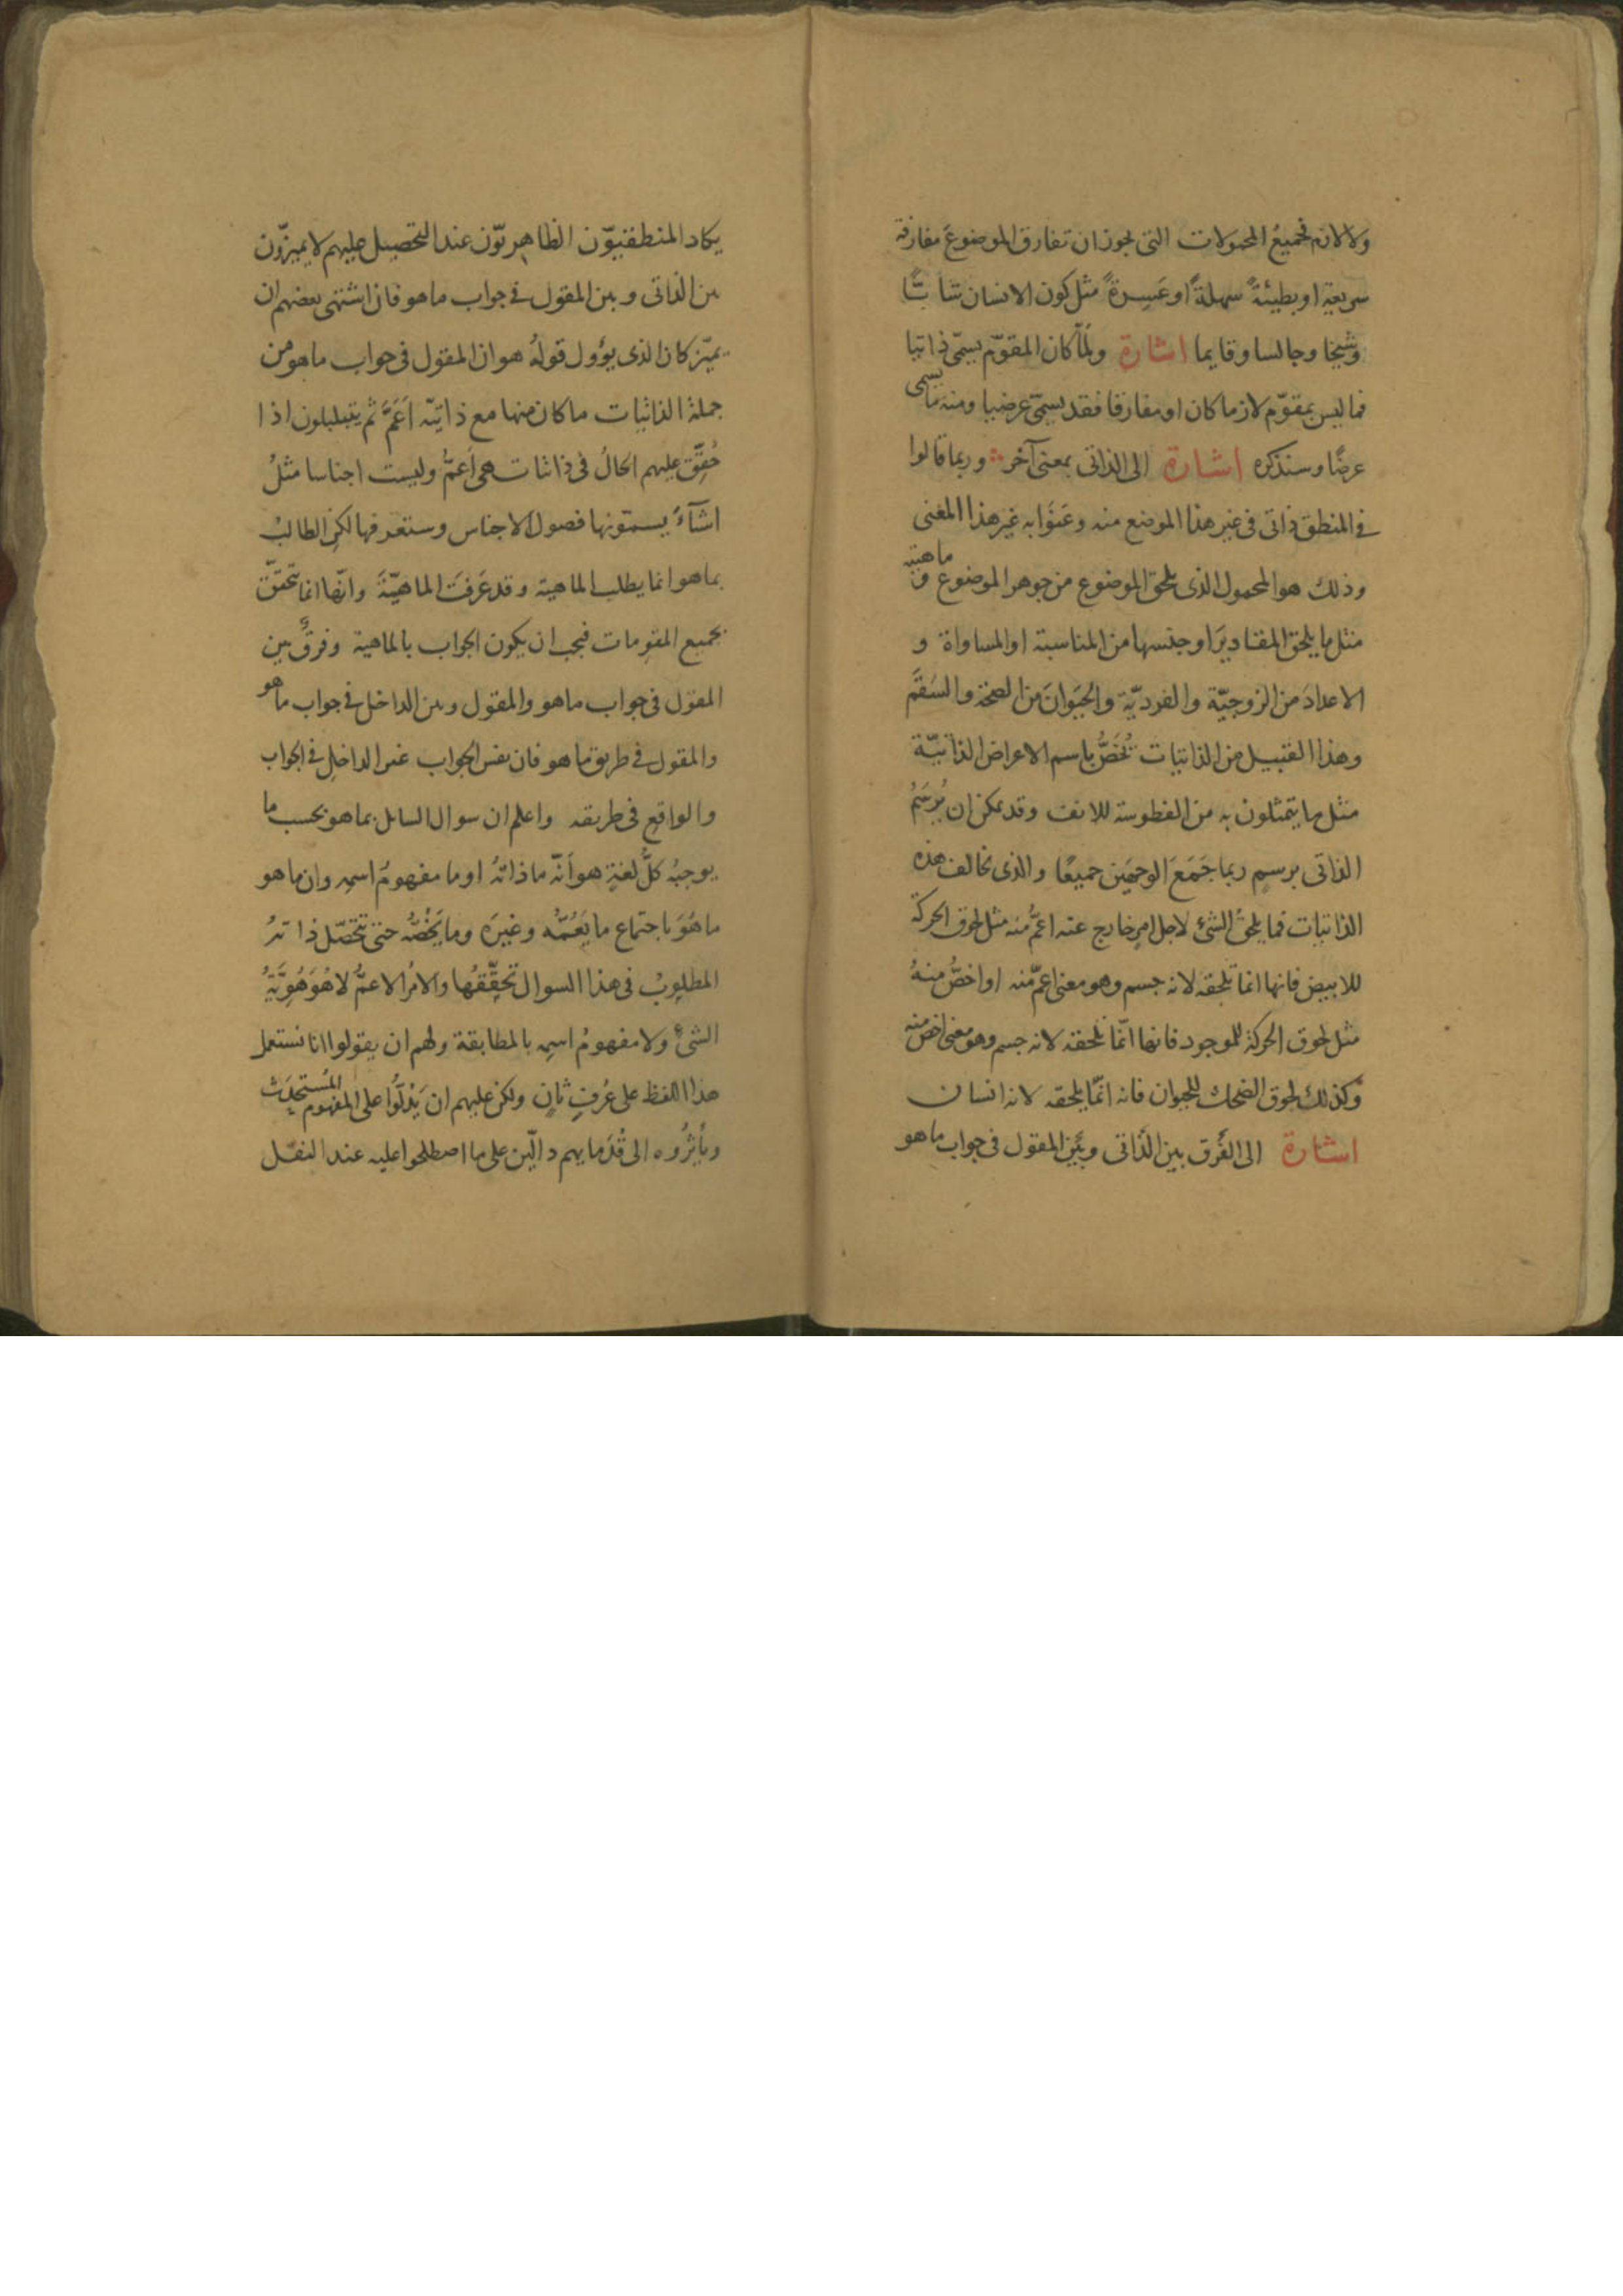 ولا لازم فجميع المحمولات التى يجوز ان تفارق الموضوعَ مفارقة
سريعة او بطيئةً سهلةً او عَسِرةً مثل كون الانسان شابًّا
وشيخا وجالسا وقايما اشارة ولمّا كان المقوّم يسمّى ذاتيا
فما ليس بمقوّم لازما كان او مفارقا فقد يسمّى عرضيا ومنه ما يسمى
عرضًا وسنذكره اشارة الى الذاتى بمعنى آخر وربما قالوا
فى المنطق ذاتى فى غير هذا الموضع منه وعَنَوا به غير هذا المعنى
وذلك هو المحمول الذى يلحق الموضوع من جوهر الموضوع و ماهيته
مثل ما يلحق المقاديرَ او جنسها من المناسبة او المساواة و
الاعدادَ من الزوجيّة والفرديّة والحيَوانَ من الصحّة والسَقَم
وهذا القبيل من الذاتيات يُخَصُّ باسم الاعراض الذاتيّة
مثل ما يتمثلون به من الفطوسة للانف وقد يمكن ان يُرسَمُ
الذاتى برسمٍ ربما جَمَعَ الوجهَين جميعًا والذى يخالف هذه
الذاتيات فما يلحق الشئ لاجل امرٍ خارج عنه اعمُّ منه مثل لحوق الحركة
للابيض فانها انما تلحقه لانه جسم وهو معنى اعمّ منه او اخصُّ منهُ
مثل لحوق الحركة للموجود فانها انّما تلحقه لانه جسم وهو معنى اخص منه
وكذلك لحوق الضحك للحيوان فانه انّما يلحقه لانه انسان
اشارة الى الفَرق بين الذّاتى وبَين المقول فى جواب ما هو
يكاد المنطقيّون الظاهريّون عند التحصيل عليهم لا يميزّون
بين الذاتى وبين المقول فى جواب ما هو فان اشتهى بعضهم ان
يميّز كان الذى يؤول قولهُ هو ان المقول فى جواب ما هو من
جملة الذاتيات ما كان منها مع ذاتيّه اَعَمَّ ثم يتبلبلون اذا
حُقِّق عليهم الحالُ فى ذاتيات هى اَعمُّ وليست اجناسا مثلُ
اشيآءَ يسمّونها فصول الاجناس وستعرفها لكن الطالبُ
بما هو انما يطلب الماهية وقد عَرفتَ الماهيّةَ وانّها انما تتحقّق
بجميع المقومات فيجب ان يكون الجواب بالماهية وفرقٌ بين
المقول فى جواب ما هو والمقول وبين الداخل فى جواب ما هو
والمقول فى طريق ما هو فان نفس الجواب غير الداخلِ فى الجواب
والواقعِ فى طريقه واعلم ان سوال السايل بما هو بحسب ما
يوجبُه كلُّ لغةٍ هو اَنّه ما ذاتهُ او ما مفهومُ اسمِه وان ما هو
ما هُوَ باجتماع ما يَعُمُّه وغيرَه وما يَخُصُّه حتى تتحصّل ذاتهُ
المطلوبُ فى هذا السوال تحقّقُها والامرُ الاعمُّ لا هُوَ هُوِيَّةُ
الشئ ولا مفهومُ اسمِه بالمطابقة ولهم ان يقولوا انا نستعمل
هذا اللفظ على عُرفٍ ثانٍ ولكن عليهم ان يَدُلّوا على المفهوم المُستحدَث
ويأثِرُوه الى قُدَمايهم دالّين على ما اصطلحوا عليه عند النقل